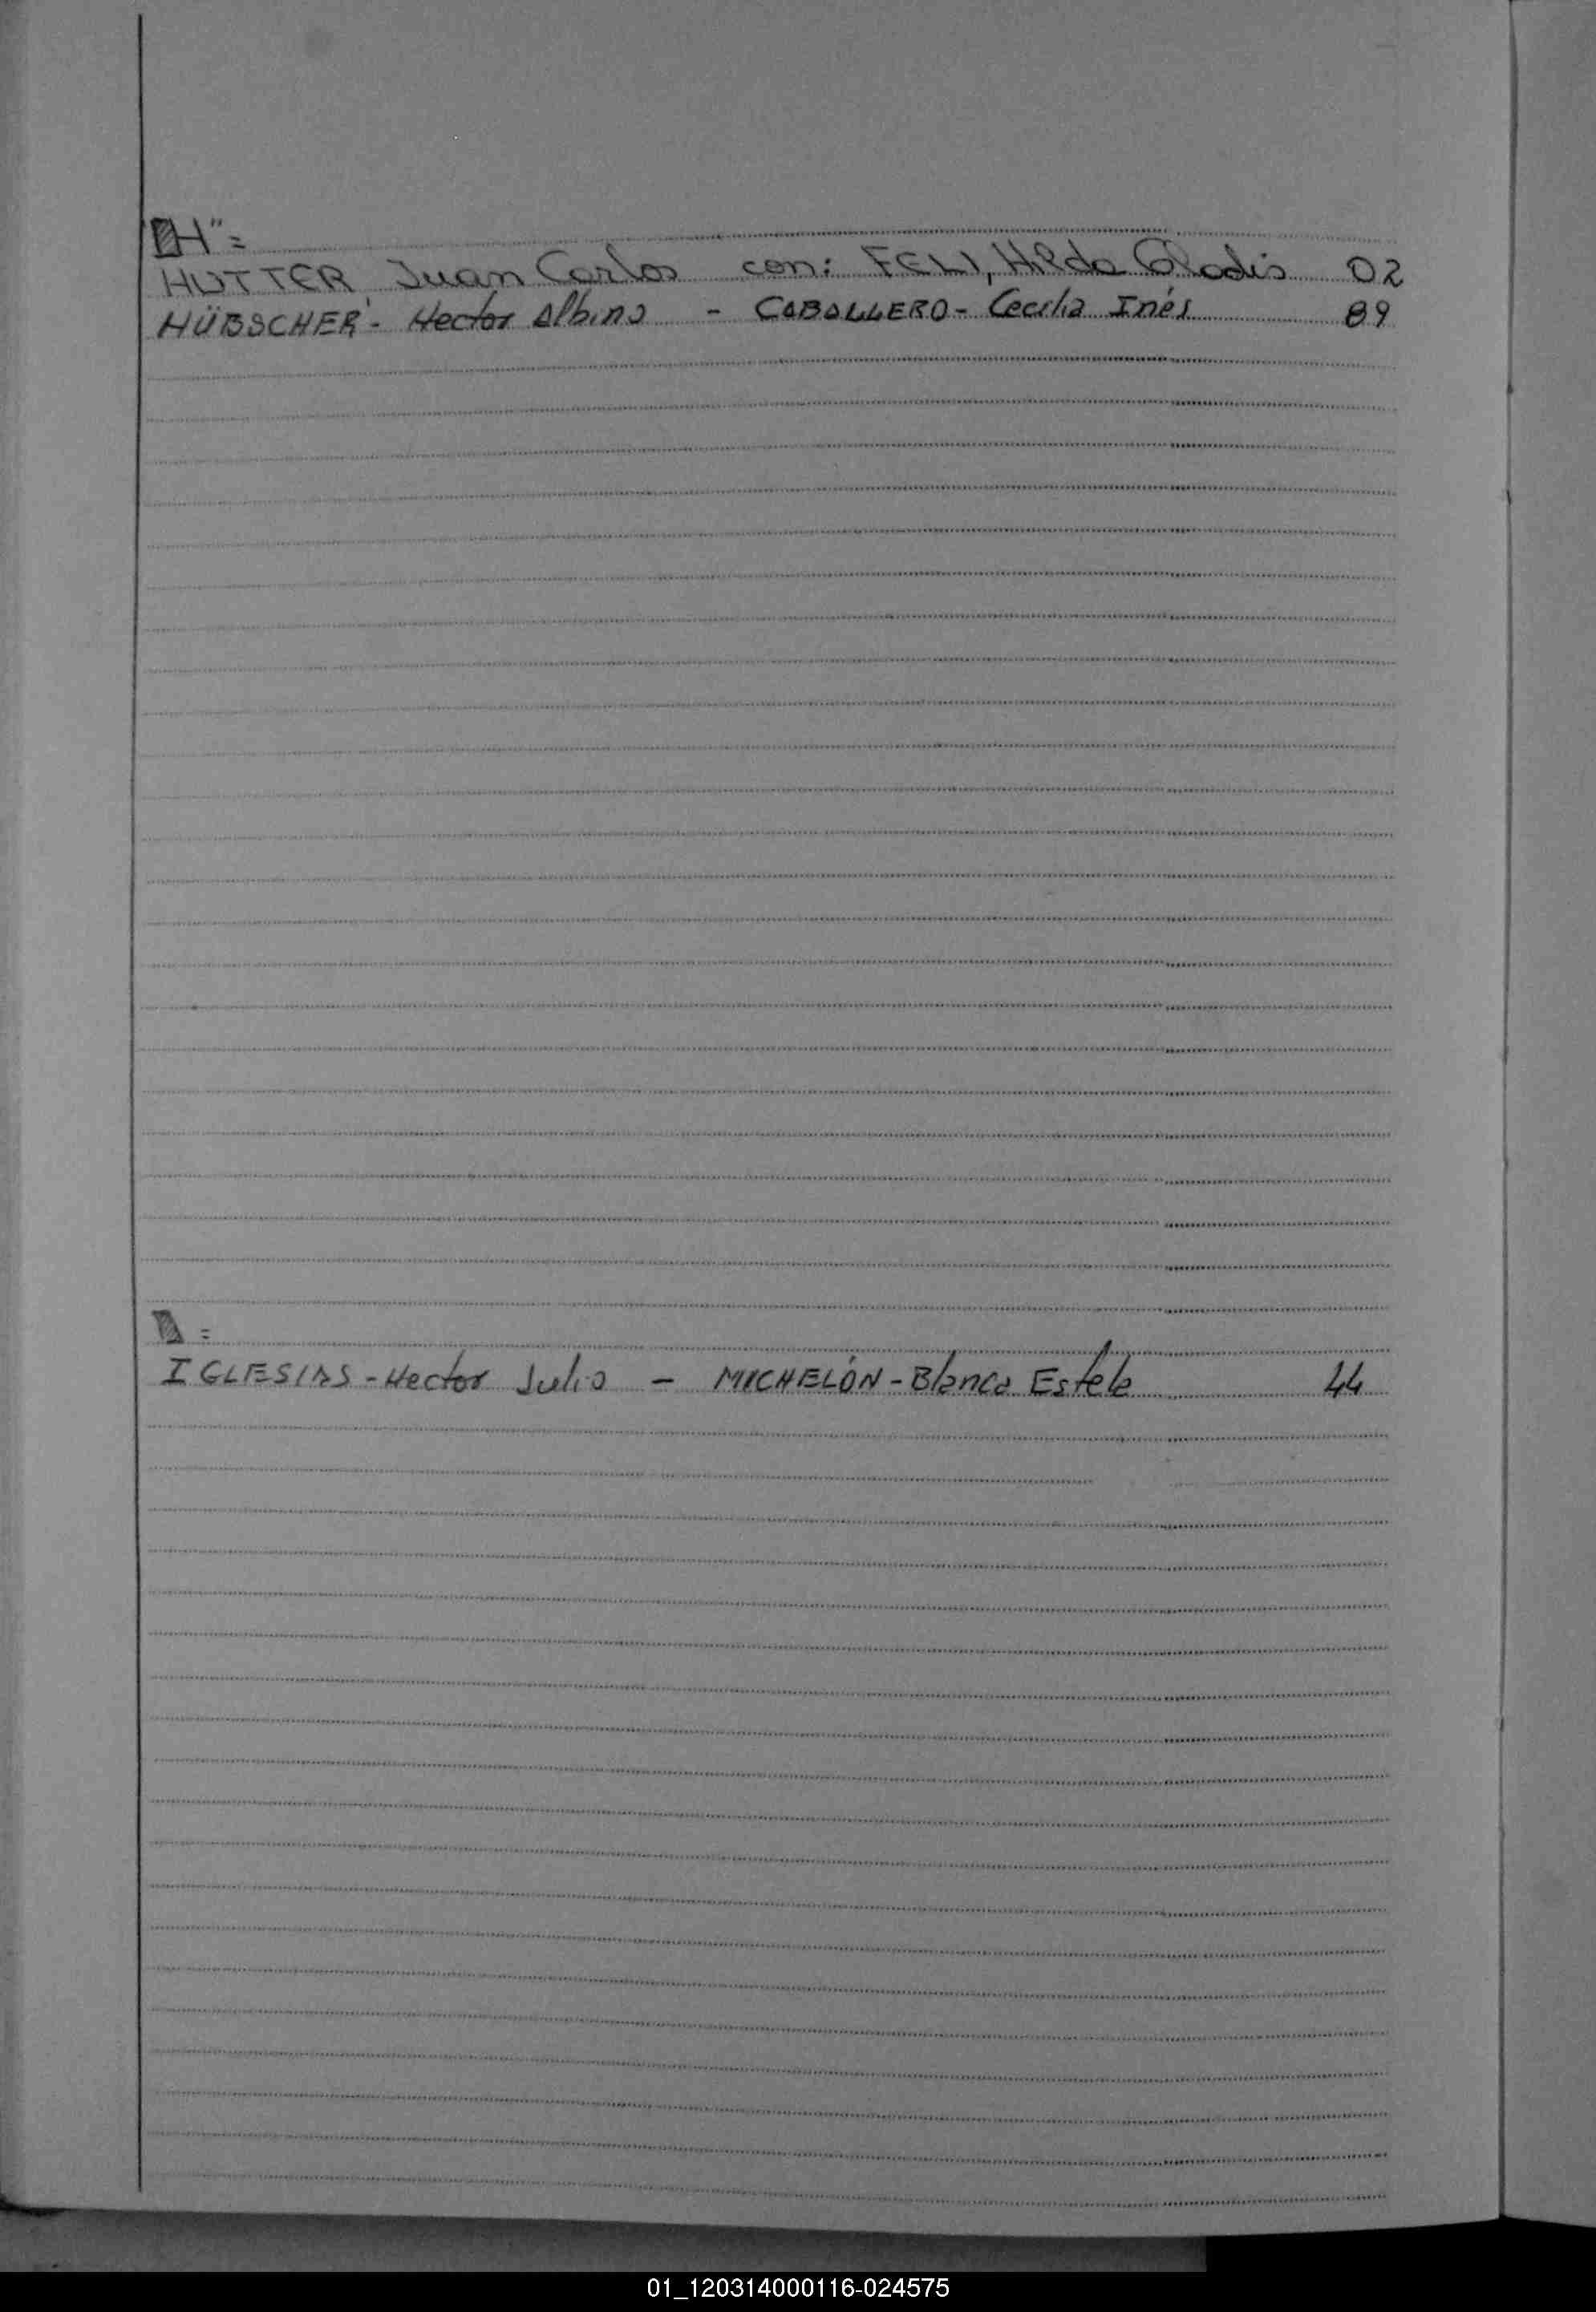 "H"=
HUTTER, Juan Carlos con: FELI, Hilda Gladis 02
HÜBSCHER - Hector Albino - CABALLERO - Cecilia Inés 89
IGLESIAS - Hector Julio - MICHELÓN - Blanca Estela 44
01_120314000116-024575